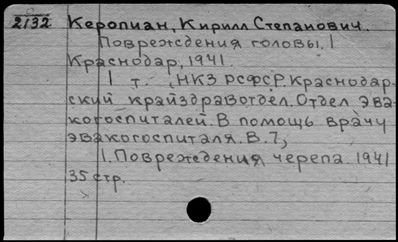 2132 Керопиан, Кирилл Степанович.
Повреждения головы. 1
Краснодар, 1941.
1 т. (НКЗ РСФСР. Краснодар-
ский крайздравотдел. Отдел эва-
когоспиталей. В помощь врачу
эвакогоспиталя. В. 7,
1. Повреждения черепа 1941
35 стр.